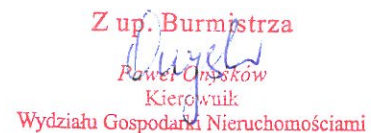 Z up. Burmistrza
Paweł Onysków
Kierownik
Wydziału Gospodarki Nieruchomościami